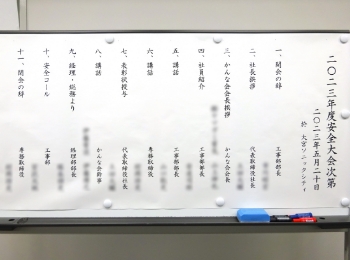 二〇二三年度安全大会次第
二〇二三年五月二十日
於 大宮ソニックシティ
一、開会の辞 工事部部長
二、社長挨拶 代表取締役社長
三、かんな会会長挨拶 かんな会会長
四、社員紹介 工事部部長
五、講話 工事部部長
六、講話 専務取締役
七、表彰状授与 代表取締役社長
八、講話 かんな会幹事
九、経理・総務より 経理部部長
十、安全コール 工事部
十一、閉会の辞 専務取締役